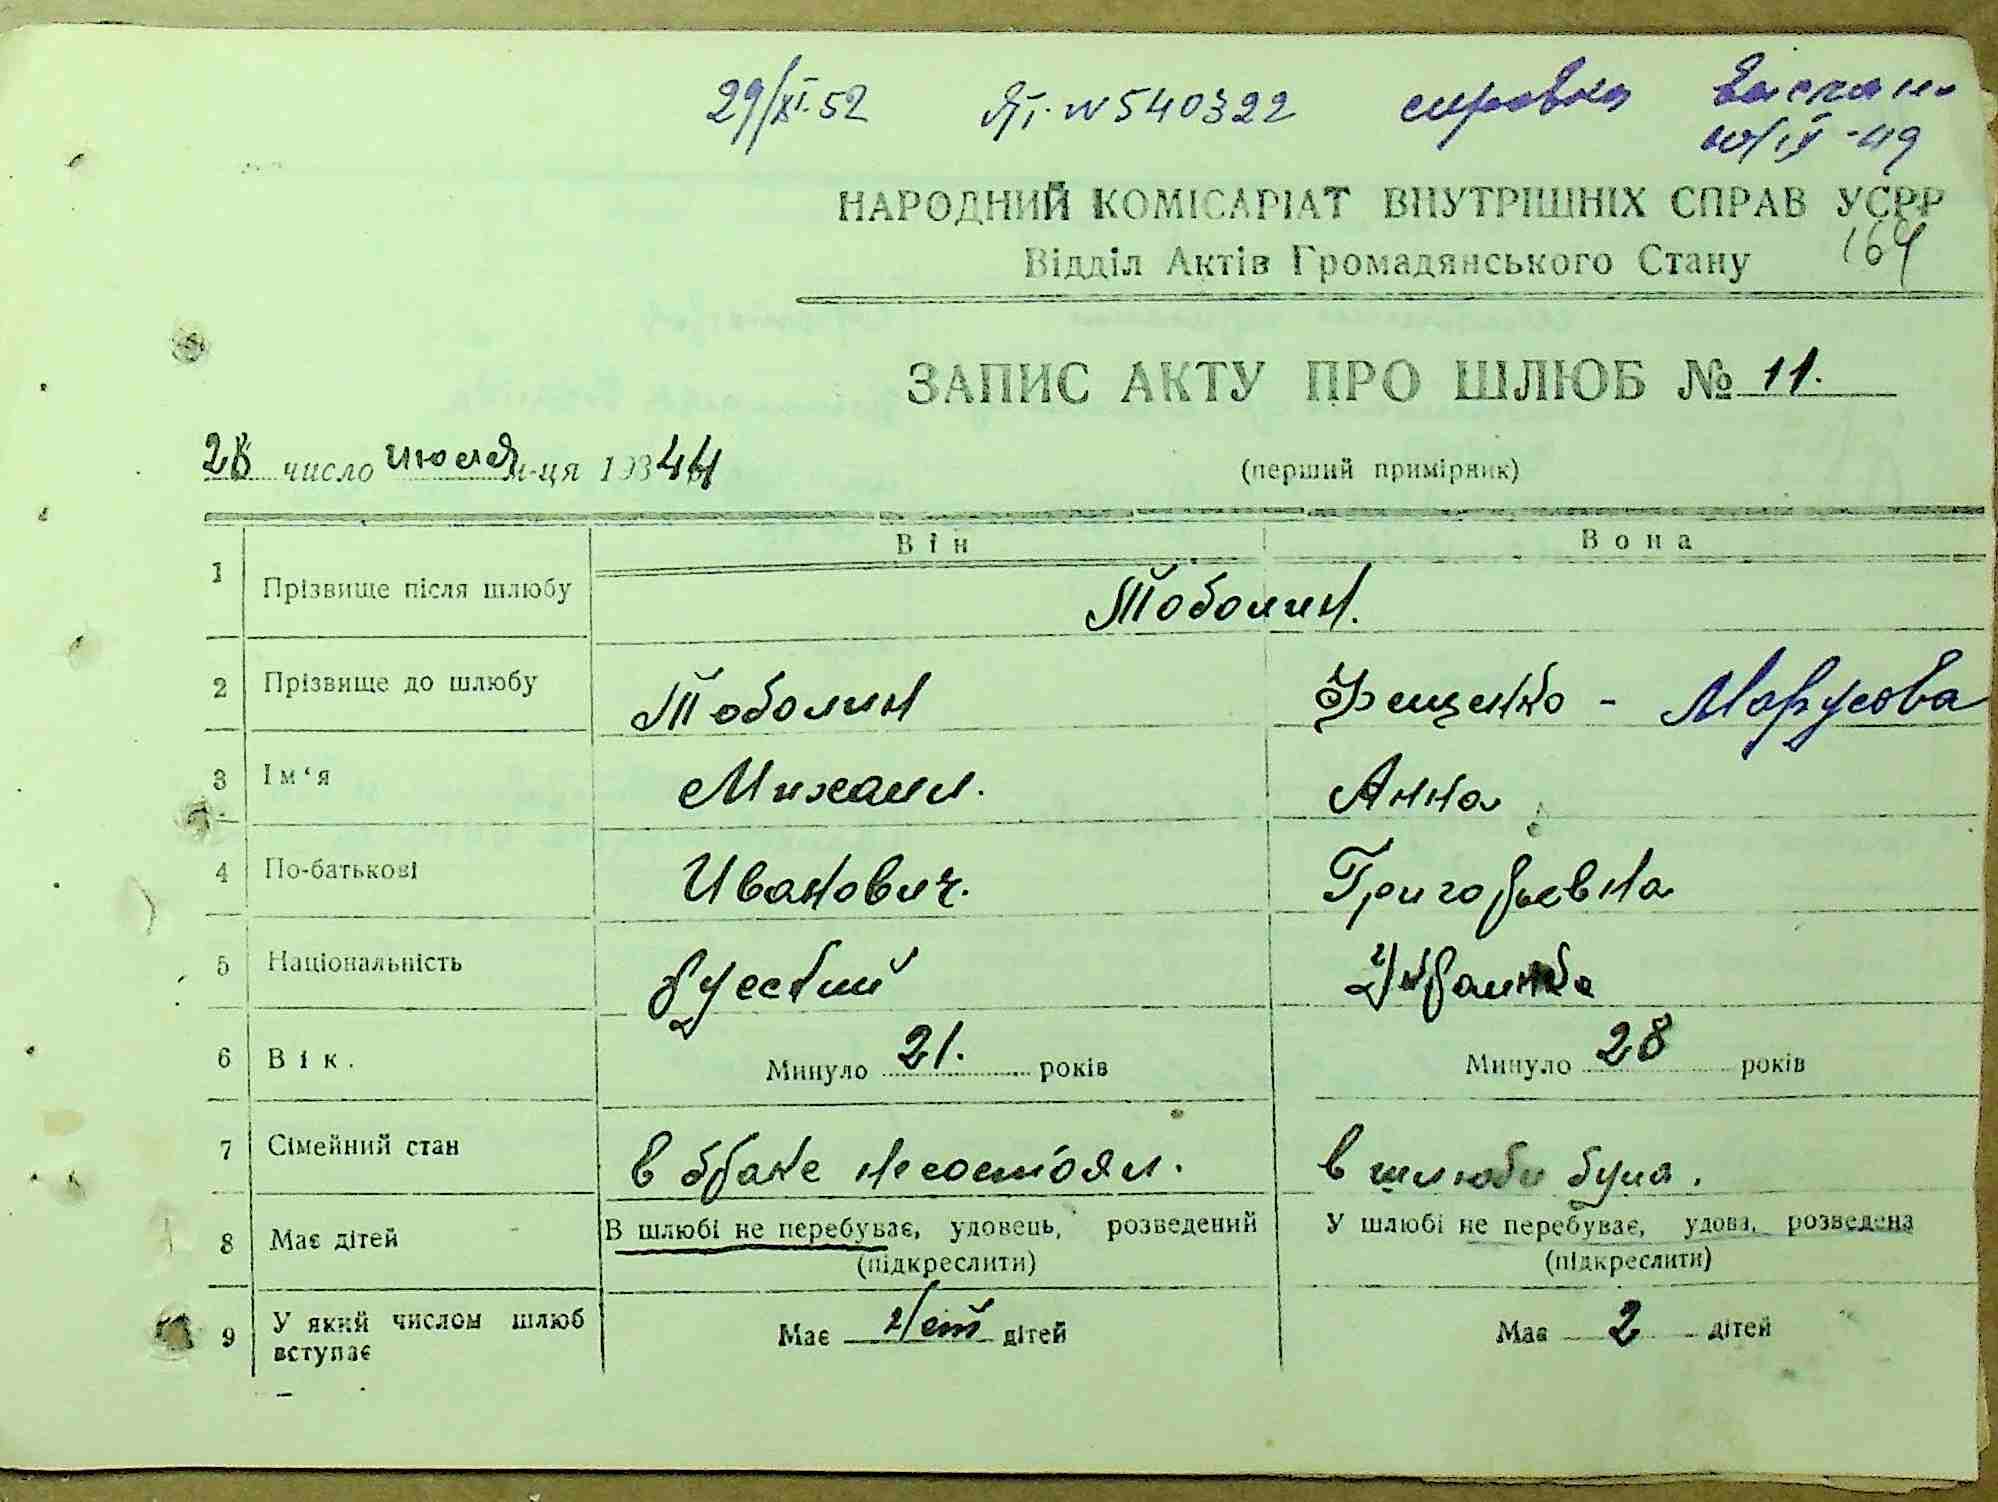 29/XI.52 ЯІ. N 540322 справка
10/IX-49
НАРОДНИЙ КОМІСАРІАТ ВНУТРІШНІХ СПРАВ УСРР
164
Відділ Актів Громадянського Стану
ЗАПИС АКТУ ПРО ШЛЮБ № 11.
28 число июля м-ця 193 44
(перший примірник)
Він Вона
1 Прізвище після шлюбу Тоболин.
2 Прізвище до шлюбу Тоболин Фещенко - Марусова
3 Ім‘я Михаил. Анна
4 По-батькові Иванович. Григорьевна
5 Національність Русский Украинка
6 Вік. Минуло 21. років Минуло 28 років
7 Сімейний стан в браке несостоял. в шлюби була.
8 Має дітей В шлюбі не перебуває, удовець, розведений У шлюбі не перебуває, удова, розведена
(підкреслити) (підкреслити)
9 У який числом шлюб вступає Має Нет дітей Має 2 дітей